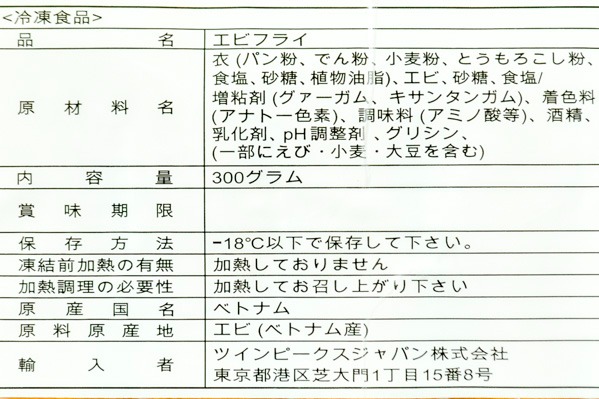 <冷凍食品>
品名 エビフライ
原材料名 衣 (パン粉、でん粉、小麦粉、とうもろこし粉、
食塩、砂糖、植物油脂)、エビ、砂糖、食塩/
増粘剤 (グァーガム、キサンタンガム)、着色料
(アナトー色素)、調味料 (アミノ酸等)、酒精、
乳化剤、pH調整剤 、グリシン、
(一部にえび・小麦・大豆を含む)
内容量 300グラム
賞味期限
保存方法 -18℃以下で保存して下さい。
凍結前加熱の有無 加熱しておりません
加熱調理の必要性 加熱してお召し上がり下さい
原産国名 ベトナム
原料原産地 エビ (ベトナム産)
輸入者 ツインピークスジャパン株式会社
東京都港区芝大門1丁目15番8号